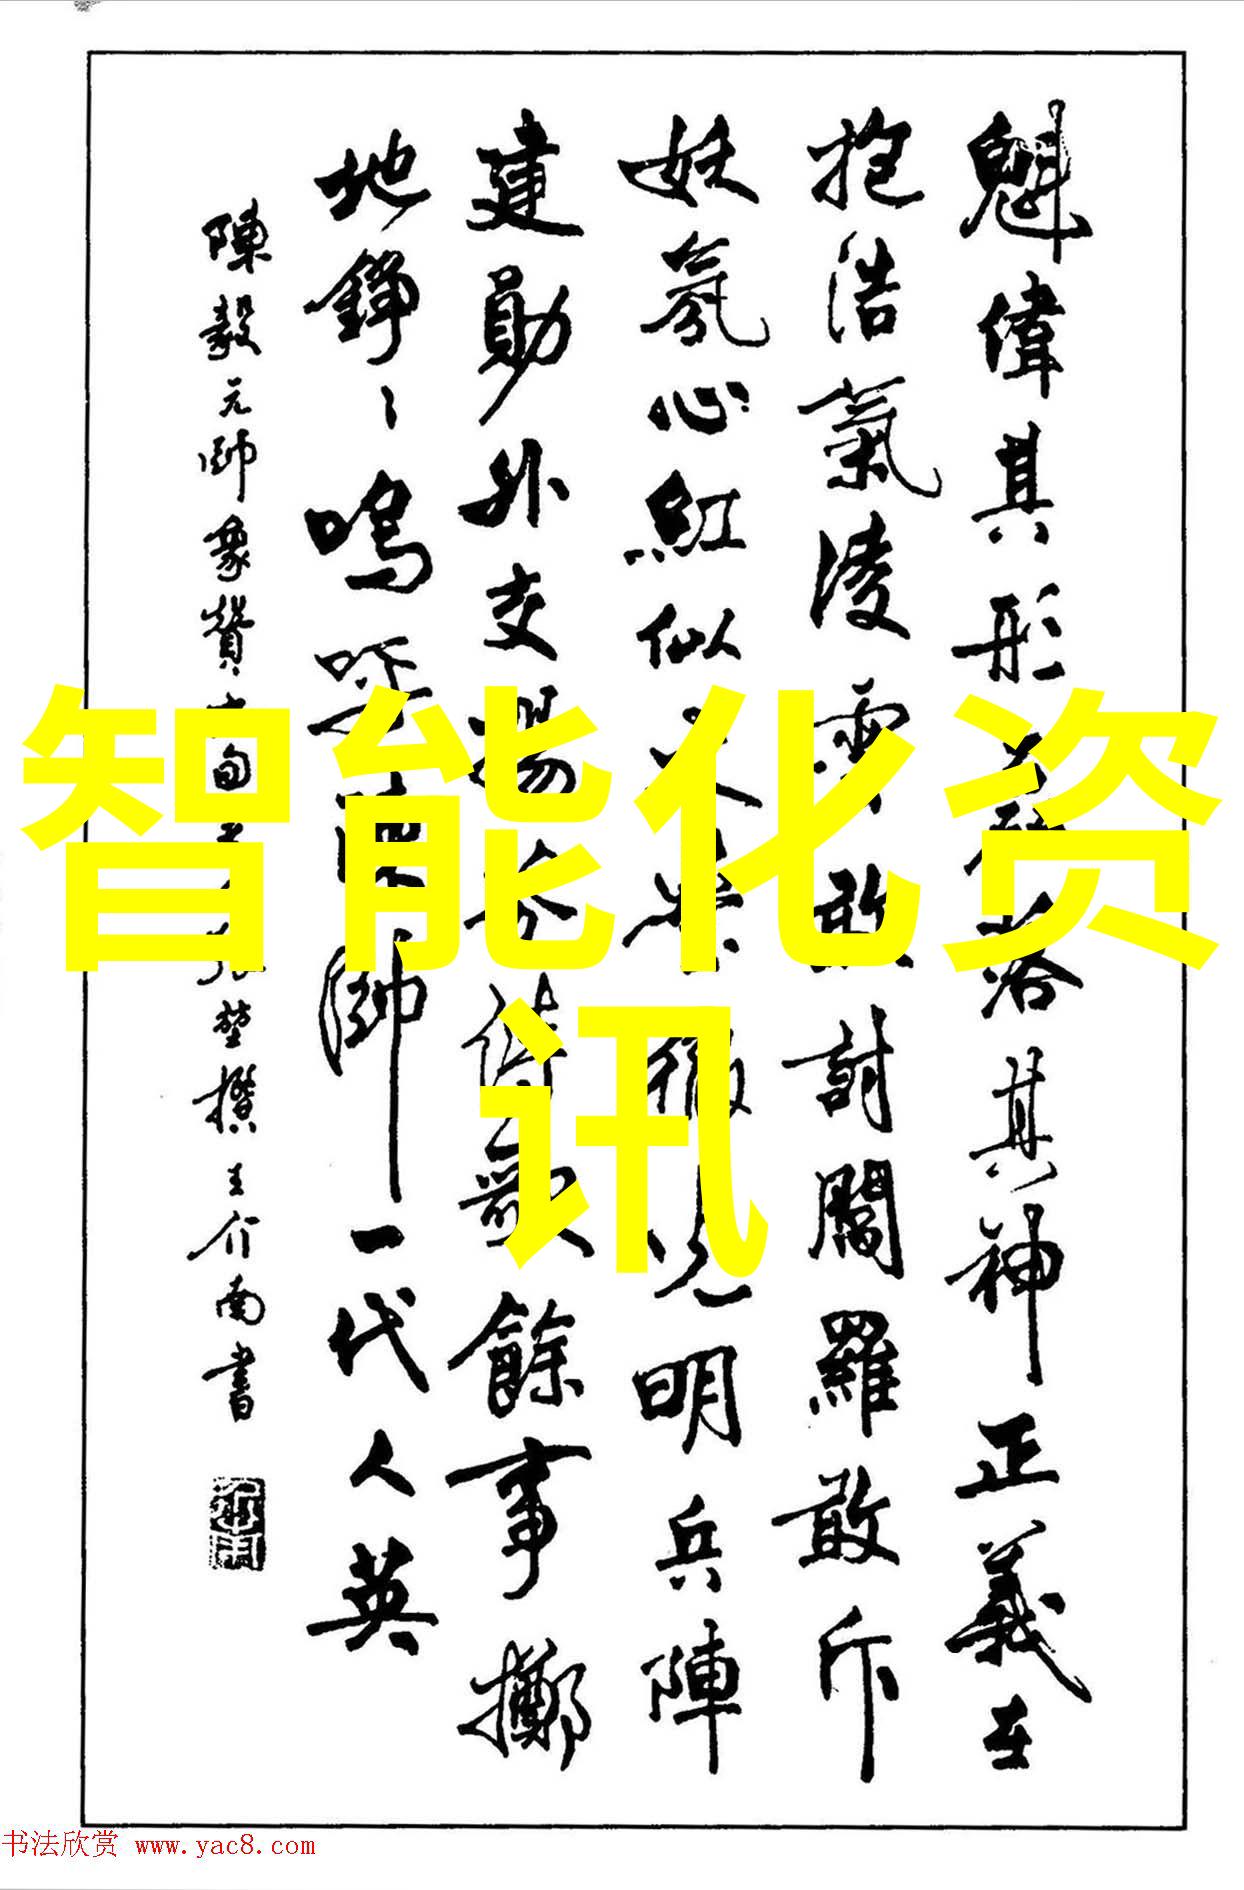 魁偉其形落其神正義在
抱浩氣凌雲敢討閻羅敢斥
妖氛心紅似火明兵陣
建勛外交揚詩歌餘事擲
地錚々嗚呼陳帥一代人英
陳毅元帥象贊撰王介南書
智能化资
讯
书法欣赏 www.yac8.com